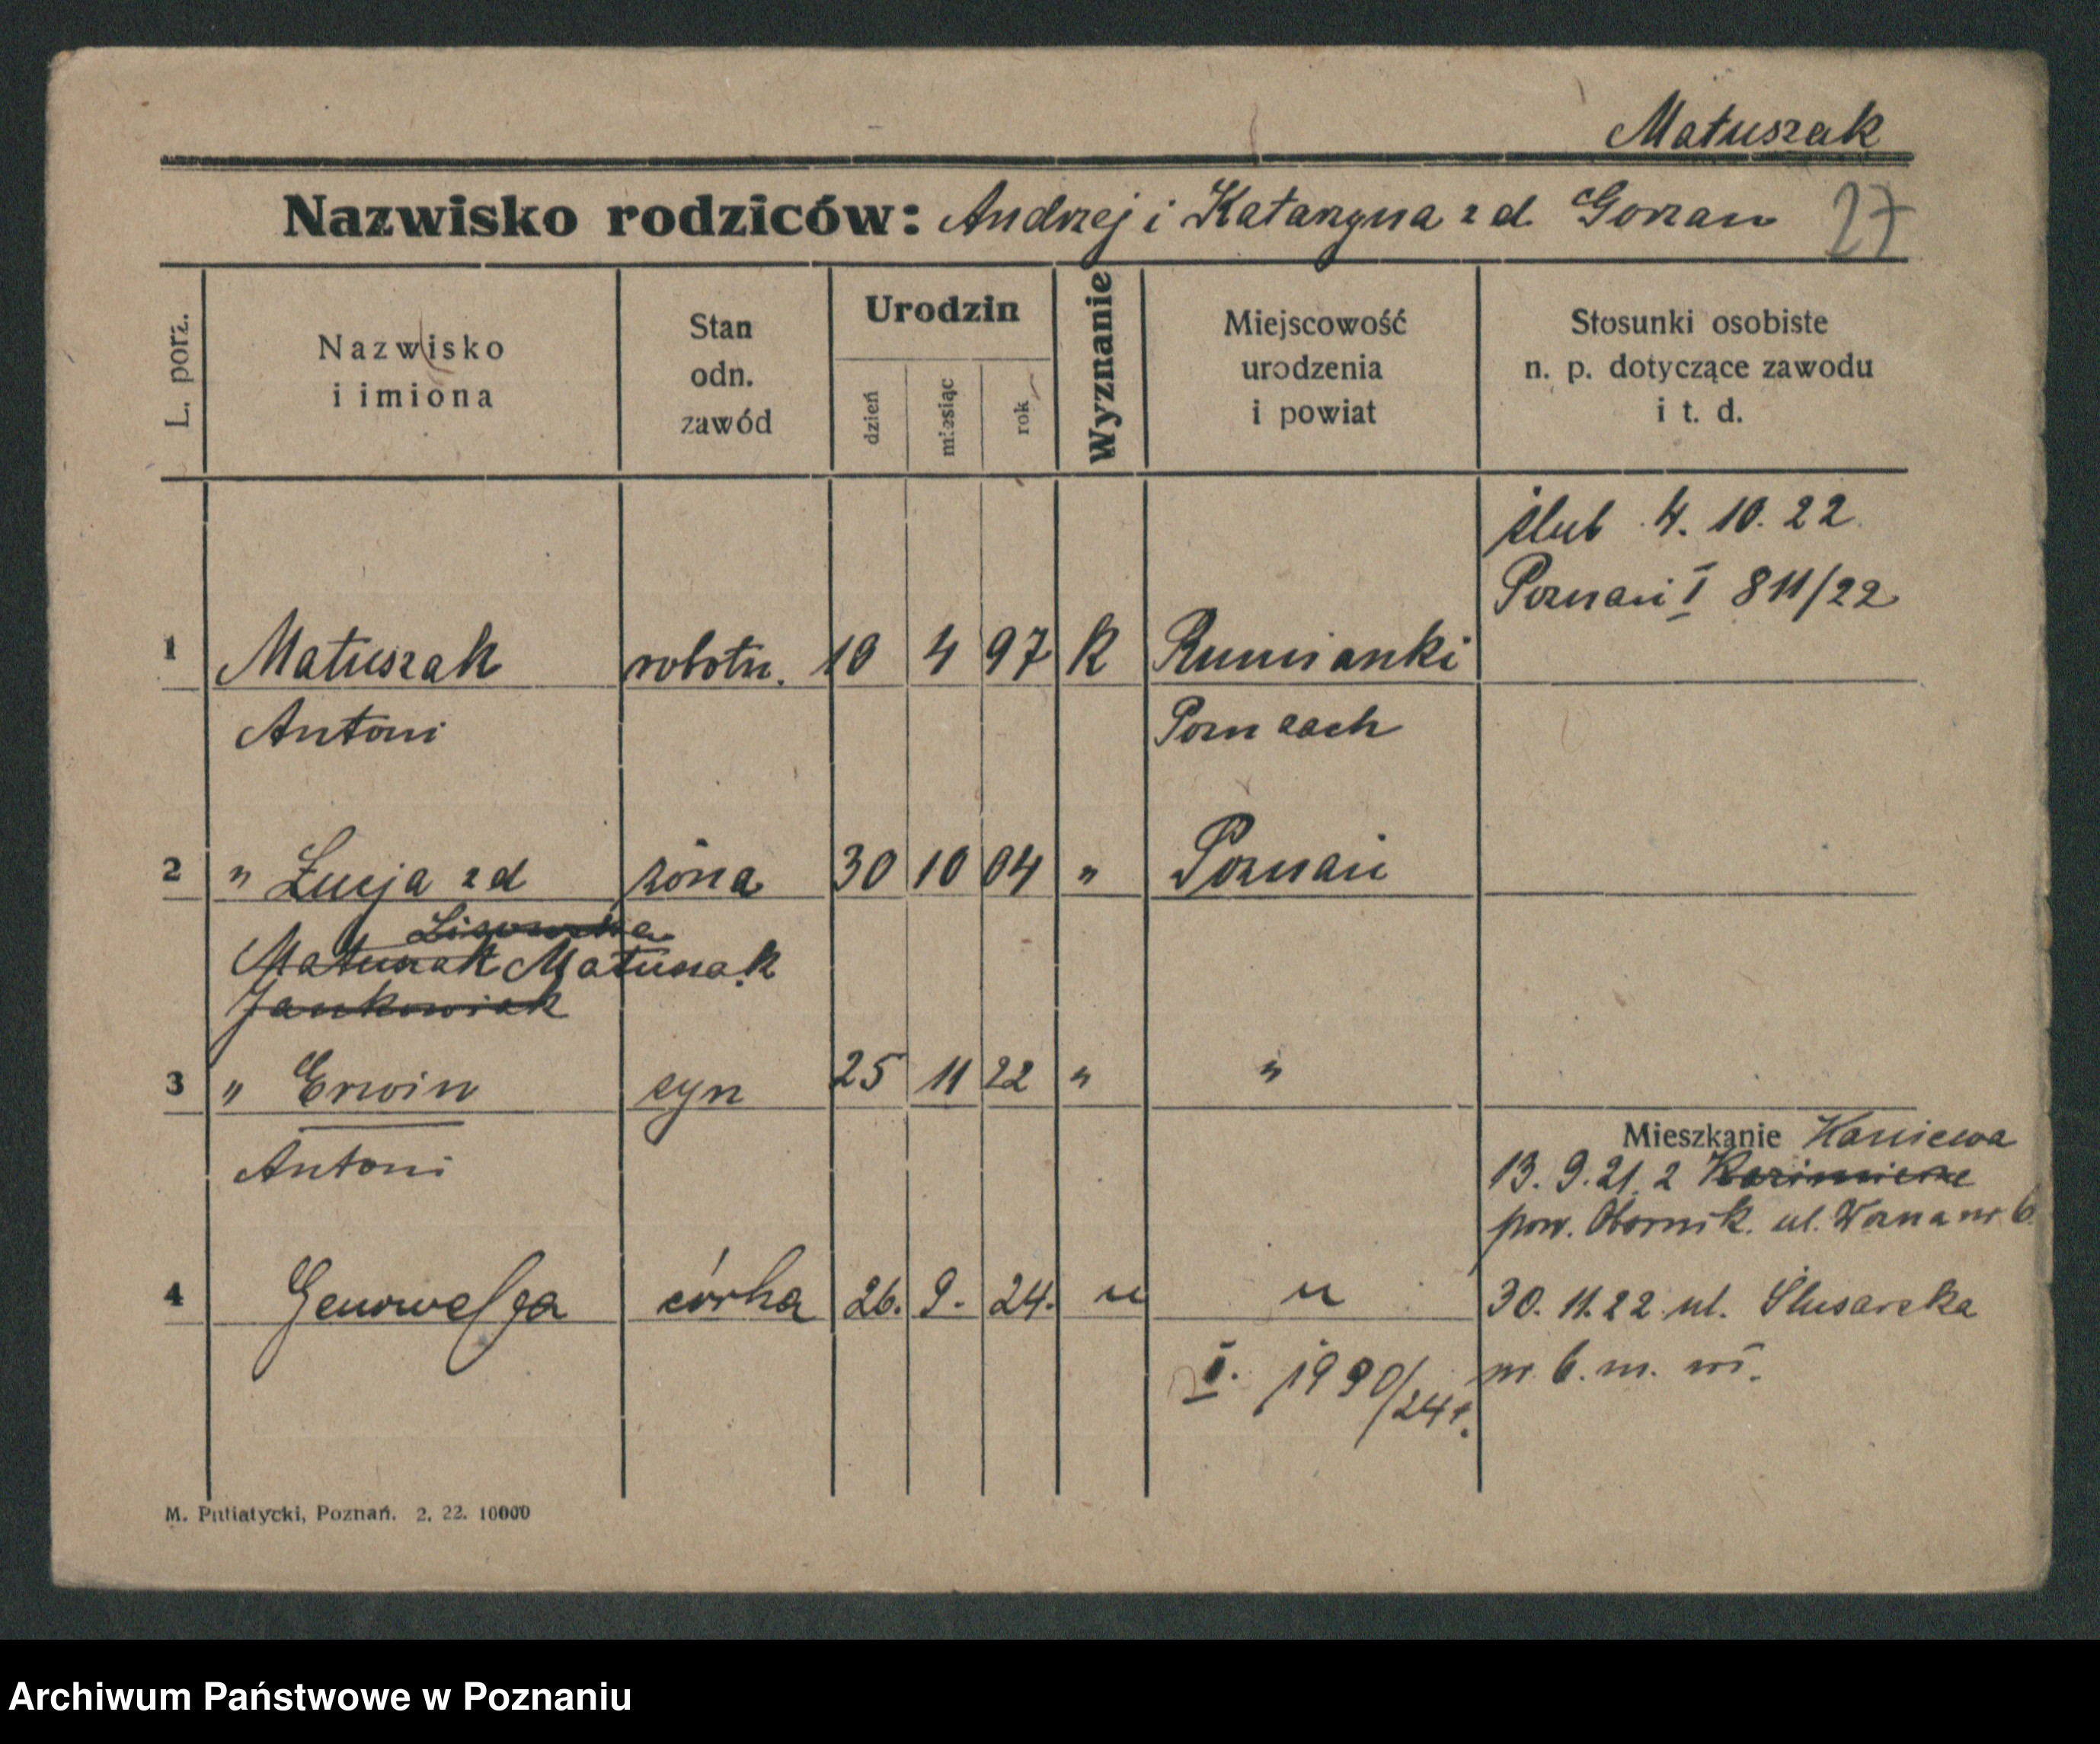 Matuszak
Nazwisko rodziców: Andrzej i Katarzyna z d Gorzan 27
L. porz.
Nazwisko i imiona
Stan odn. zawód
Urodzin
dzień miesiąc rok
Wyznanie
Miejscowość urodzenia i powiat
Stosunki osobiste n. p. dotyczące zawodu i t. d.
ślub 4. 10. 22
Poznań I 811/22
1 Matuszak robotn. 10 4 97 K Rumianki
Antoni
2 " Łucja z d żona 30 10 04 " Poznań
Lisowska
Matuszak Matuszak
Jankowiak
3 " Erwin syn 25 11 22 " "
Antoni
Mieszkanie Kaniewa
13. 9. 21. z Kazimierz
pow. Obornik. ul. Wozna nr 6
4 Genowefa córka 26. 9. 24. " "
30. 11. 22 ul. Ślusarska
nr 6. m.
I. 1990/24 r.
M. Putiatycki, Poznań. 2. 22. 10000
Archiwum Państwowe w Poznaniu